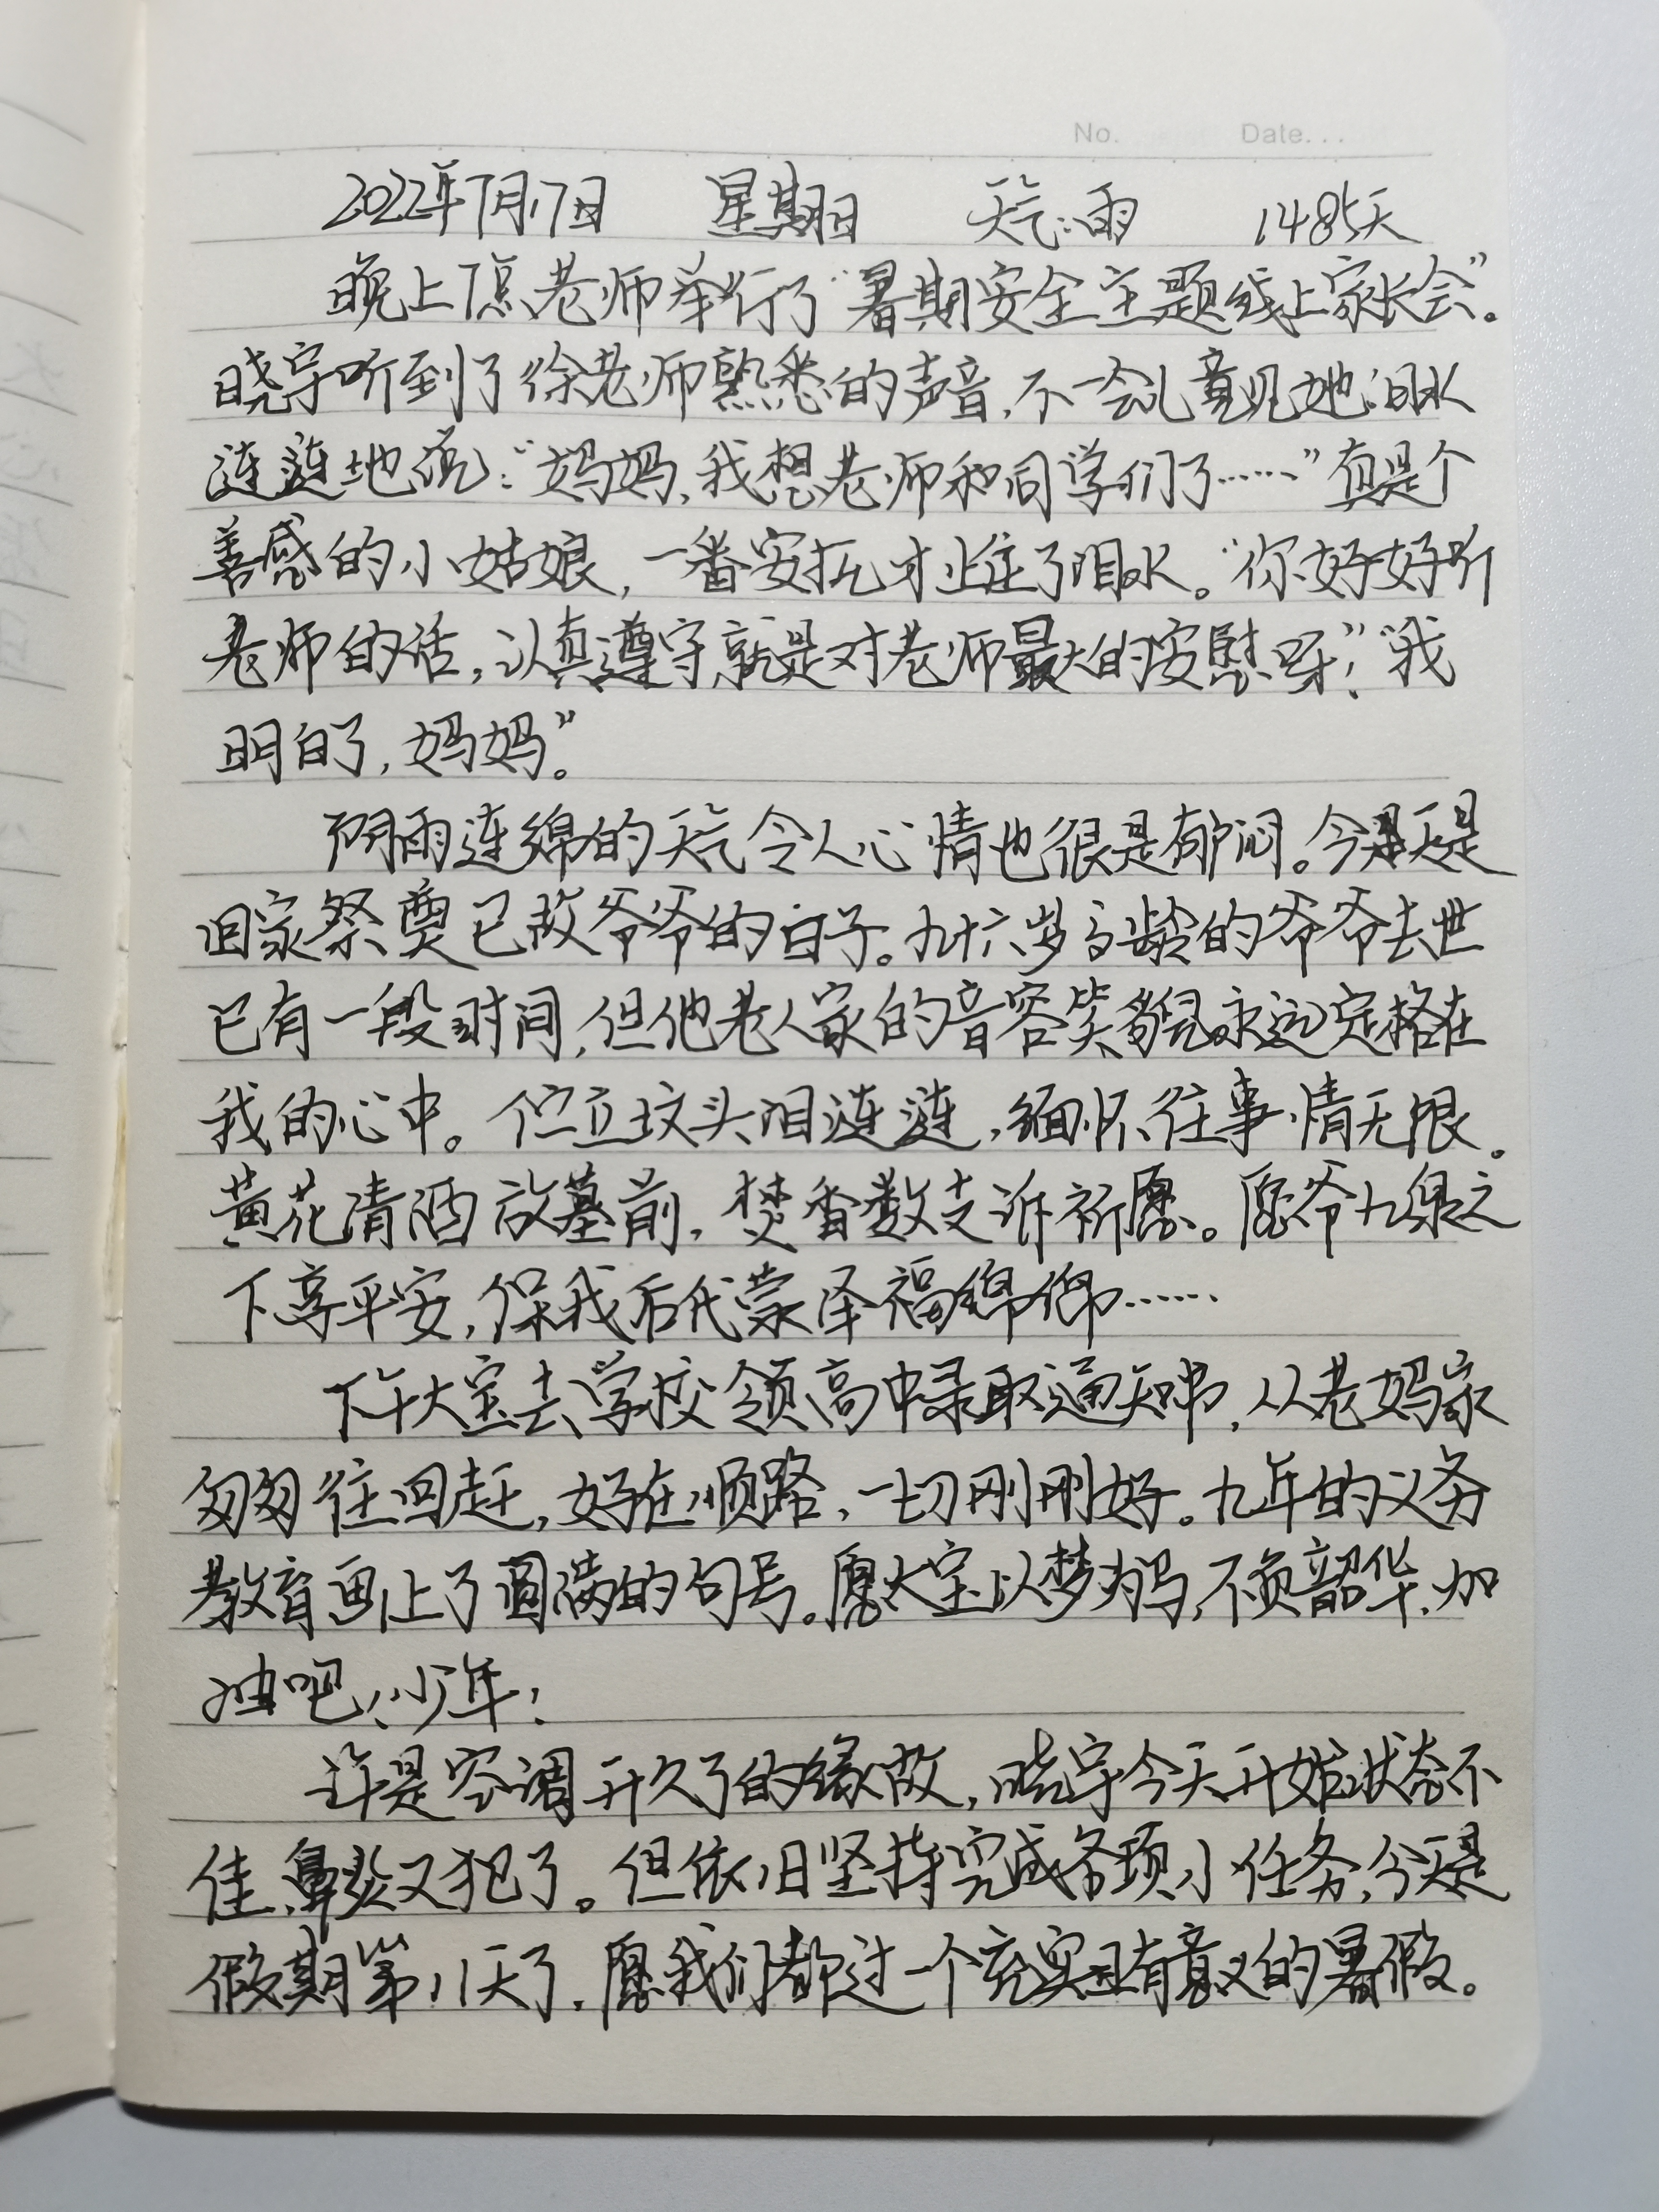 No. Date...
2022年7月17日 星期日 天气:雨 1485天
晚上7点老师举行了“暑期安全主题线上家长会”。
晓宇听到了徐老师熟悉的声音,不一会儿竟见她泪水
涟涟地说:“妈妈,我想老师和同学们了……”真是个
善感的小姑娘,一番安抚才止住了泪水。“你好好听
老师的话,认真遵守就是对老师最大的安慰呀!”“我
明白了,妈妈”。
阴雨连绵的天气令人心情也很是郁闷。今天是
回家祭奠已故爷爷的日子。九十六岁高龄的爷爷去世
已有一段时间,但他老人家的音容笑貌永远定格在
我的心中。伫立坟头泪涟涟,缅怀往事情无限。
黄花清酒放墓前,焚香数支诉祈愿。愿爷九泉之
下享平安,保我后代蒙泽福绵绵……
下午大宝去学校领高中录取通知书,从老妈家
匆匆往回赶,好在顺路,一切刚刚好。九年的义务
教育画上了圆满的句号。愿大宝以梦为马,不负韶华,加
油吧,少年!
许是空调开久了的缘故,晓宇今天开始状态不
佳,鼻炎又犯了。但依旧坚持完成各项小任务,今天是
假期第11天了,愿我们都过一个充实且有意义的暑假。